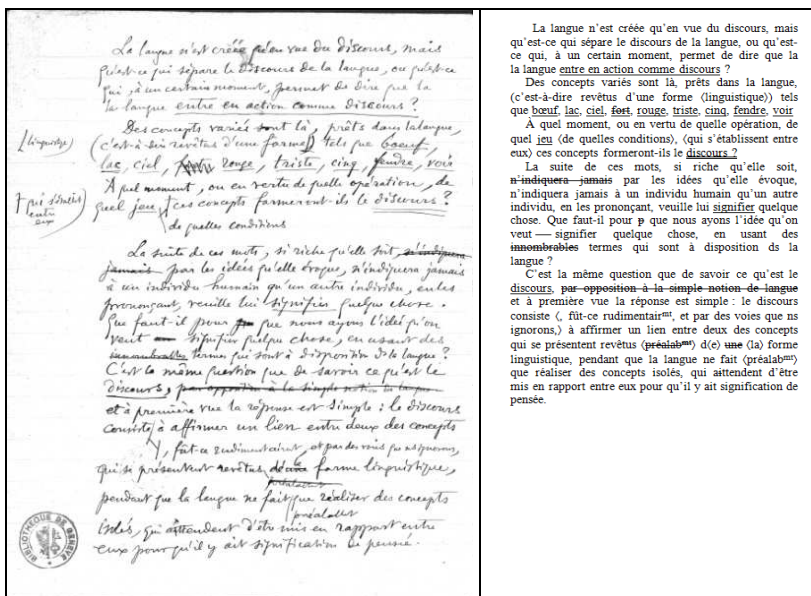 La langue n'est créée qu'en vue du discours, mais
qu'est-ce qui sépare le discours de la langue, ou qu'est-ce
qui, à un certain moment, permet de dire que la
la langue entre en action comme discours ?
Des concepts variés sont là, prêts dans la langue,
⟨linguistique⟩
(c'est-à-dire revêtus d'une forme) tels que bœuf,
lac, ciel, rouge, triste, cinq, fendre, voir
À quel moment, ou en vertu de quelle opération, de
qui s'établissent
entre
eux
quel jeu ces concepts formeront-ils le discours ?
de quelles conditions
La suite de ces mots, si riche qu'elle soit, n'indiquera
jamais par les idées qu'elle évoque, n'indiquera jamais
à un individu humain qu'un autre individu, en les
prononçant, veuille lui signifier quelque chose.
Que faut-il pour p que nous ayons l'idée qu'on
veut — signifier quelque chose, en usant des
innombrables termes qui sont à disposition ds la langue ?
C'est la même question que de savoir ce qu'est le
discours, par opposition à la simple notion de langue
et à première vue la réponse est simple : le discours
consiste à affirmer un lien entre deux des concepts
, fût-ce rudimentairement, et par des voies que ns ignorons,
qui se présentent revêtus de une forme linguistique,
préalabmt
pendant que la langue ne fait que réaliser des concepts
préalabmt
isolés, qui attendent d'être mis en rapport entre
eux pour qu'il y ait signification de pensée.
BIBLIOTHÈQUE DE GENÈVE
La langue n'est créée qu'en vue du discours, mais
qu'est-ce qui sépare le discours de la langue, ou qu'est-
ce qui, à un certain moment, permet de dire que la
la langue entre en action comme discours ?
Des concepts variés sont là, prêts dans la langue,
(c'est-à-dire revêtus d'une forme ⟨linguistique⟩) tels
que bœuf, lac, ciel, fort, rouge, triste, cinq, fendre, voir
À quel moment, ou en vertu de quelle opération, de
quel jeu ⟨de quelles conditions⟩, ⟨qui s'établissent entre
eux⟩ ces concepts formeront-ils le discours ?
La suite de ces mots, si riche qu'elle soit,
n'indiquera jamais par les idées qu'elle évoque,
n'indiquera jamais à un individu humain qu'un autre
individu, en les prononçant, veuille lui signifier quelque
chose. Que faut-il pour p que nous ayons l'idée qu'on
veut — signifier quelque chose, en usant des
innombrables termes qui sont à disposition ds la
langue ?
C'est la même question que de savoir ce qu'est le
discours, par opposition à la simple notion de langue
et à première vue la réponse est simple : le discours
consiste ⟨, fût-ce rudimentairmt, et par des voies que ns
ignorons,⟩ à affirmer un lien entre deux des concepts
qui se présentent revêtus ⟨préalabmt⟩ d⟨e⟩ une ⟨la⟩ forme
linguistique, pendant que la langue ne fait ⟨préalabmt⟩
que réaliser des concepts isolés, qui attendent d'être
mis en rapport entre eux pour qu'il y ait signification de
pensée.